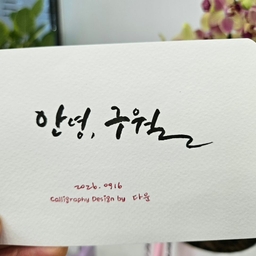 안녕, 구월
2026. 0916
Calligraphy Design by 다온